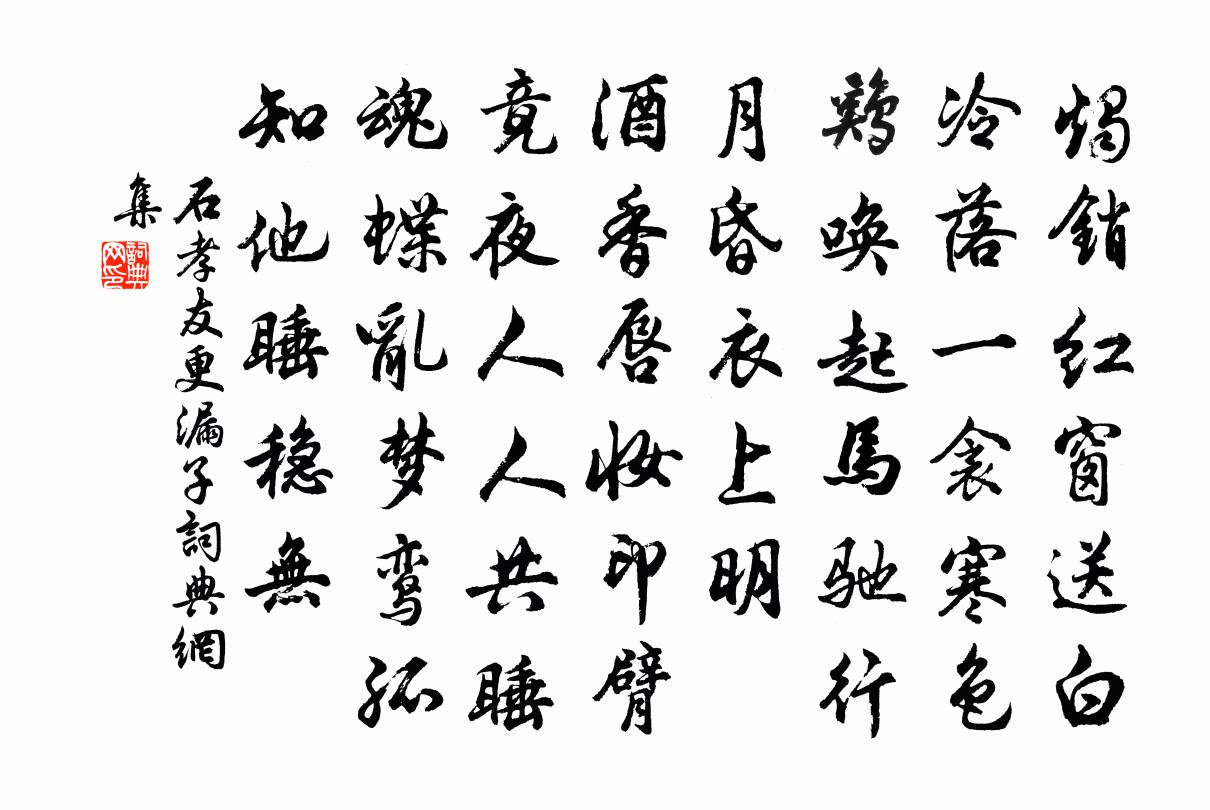 燭銷红窗送白
冷落一衾寒色
鷄唤起馬驰行
月昏衣上明
酒香唇妆印臂
竟夜人人共睡
魂蝶亂梦鸾孤
知他睡穏無
石孝友更漏子詞典網
集
詞典网印